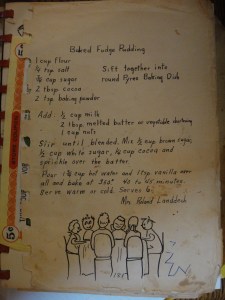 Baked Fudge Pudding
1 cup flour
¼ tsp salt Sift together into
¾ cup sugar round Pyrex Baking Dish
2 tbsp cocoa
2 tsp baking powder
Add: ½ cup milk
2 tbsp melted butter or vegetable shortening
1 cup nuts
Stir until blended. Mix ½ cup brown sugar,
½ cup white sugar, ¼ cup cocoa and
sprinkle over the batter.
Pour 1 ¾ cup hot water and 1 tsp vanilla over
all and bake at 350° 40 to 45 minutes.
Serve warm or cold. Serves 6.
Mrs. Roland